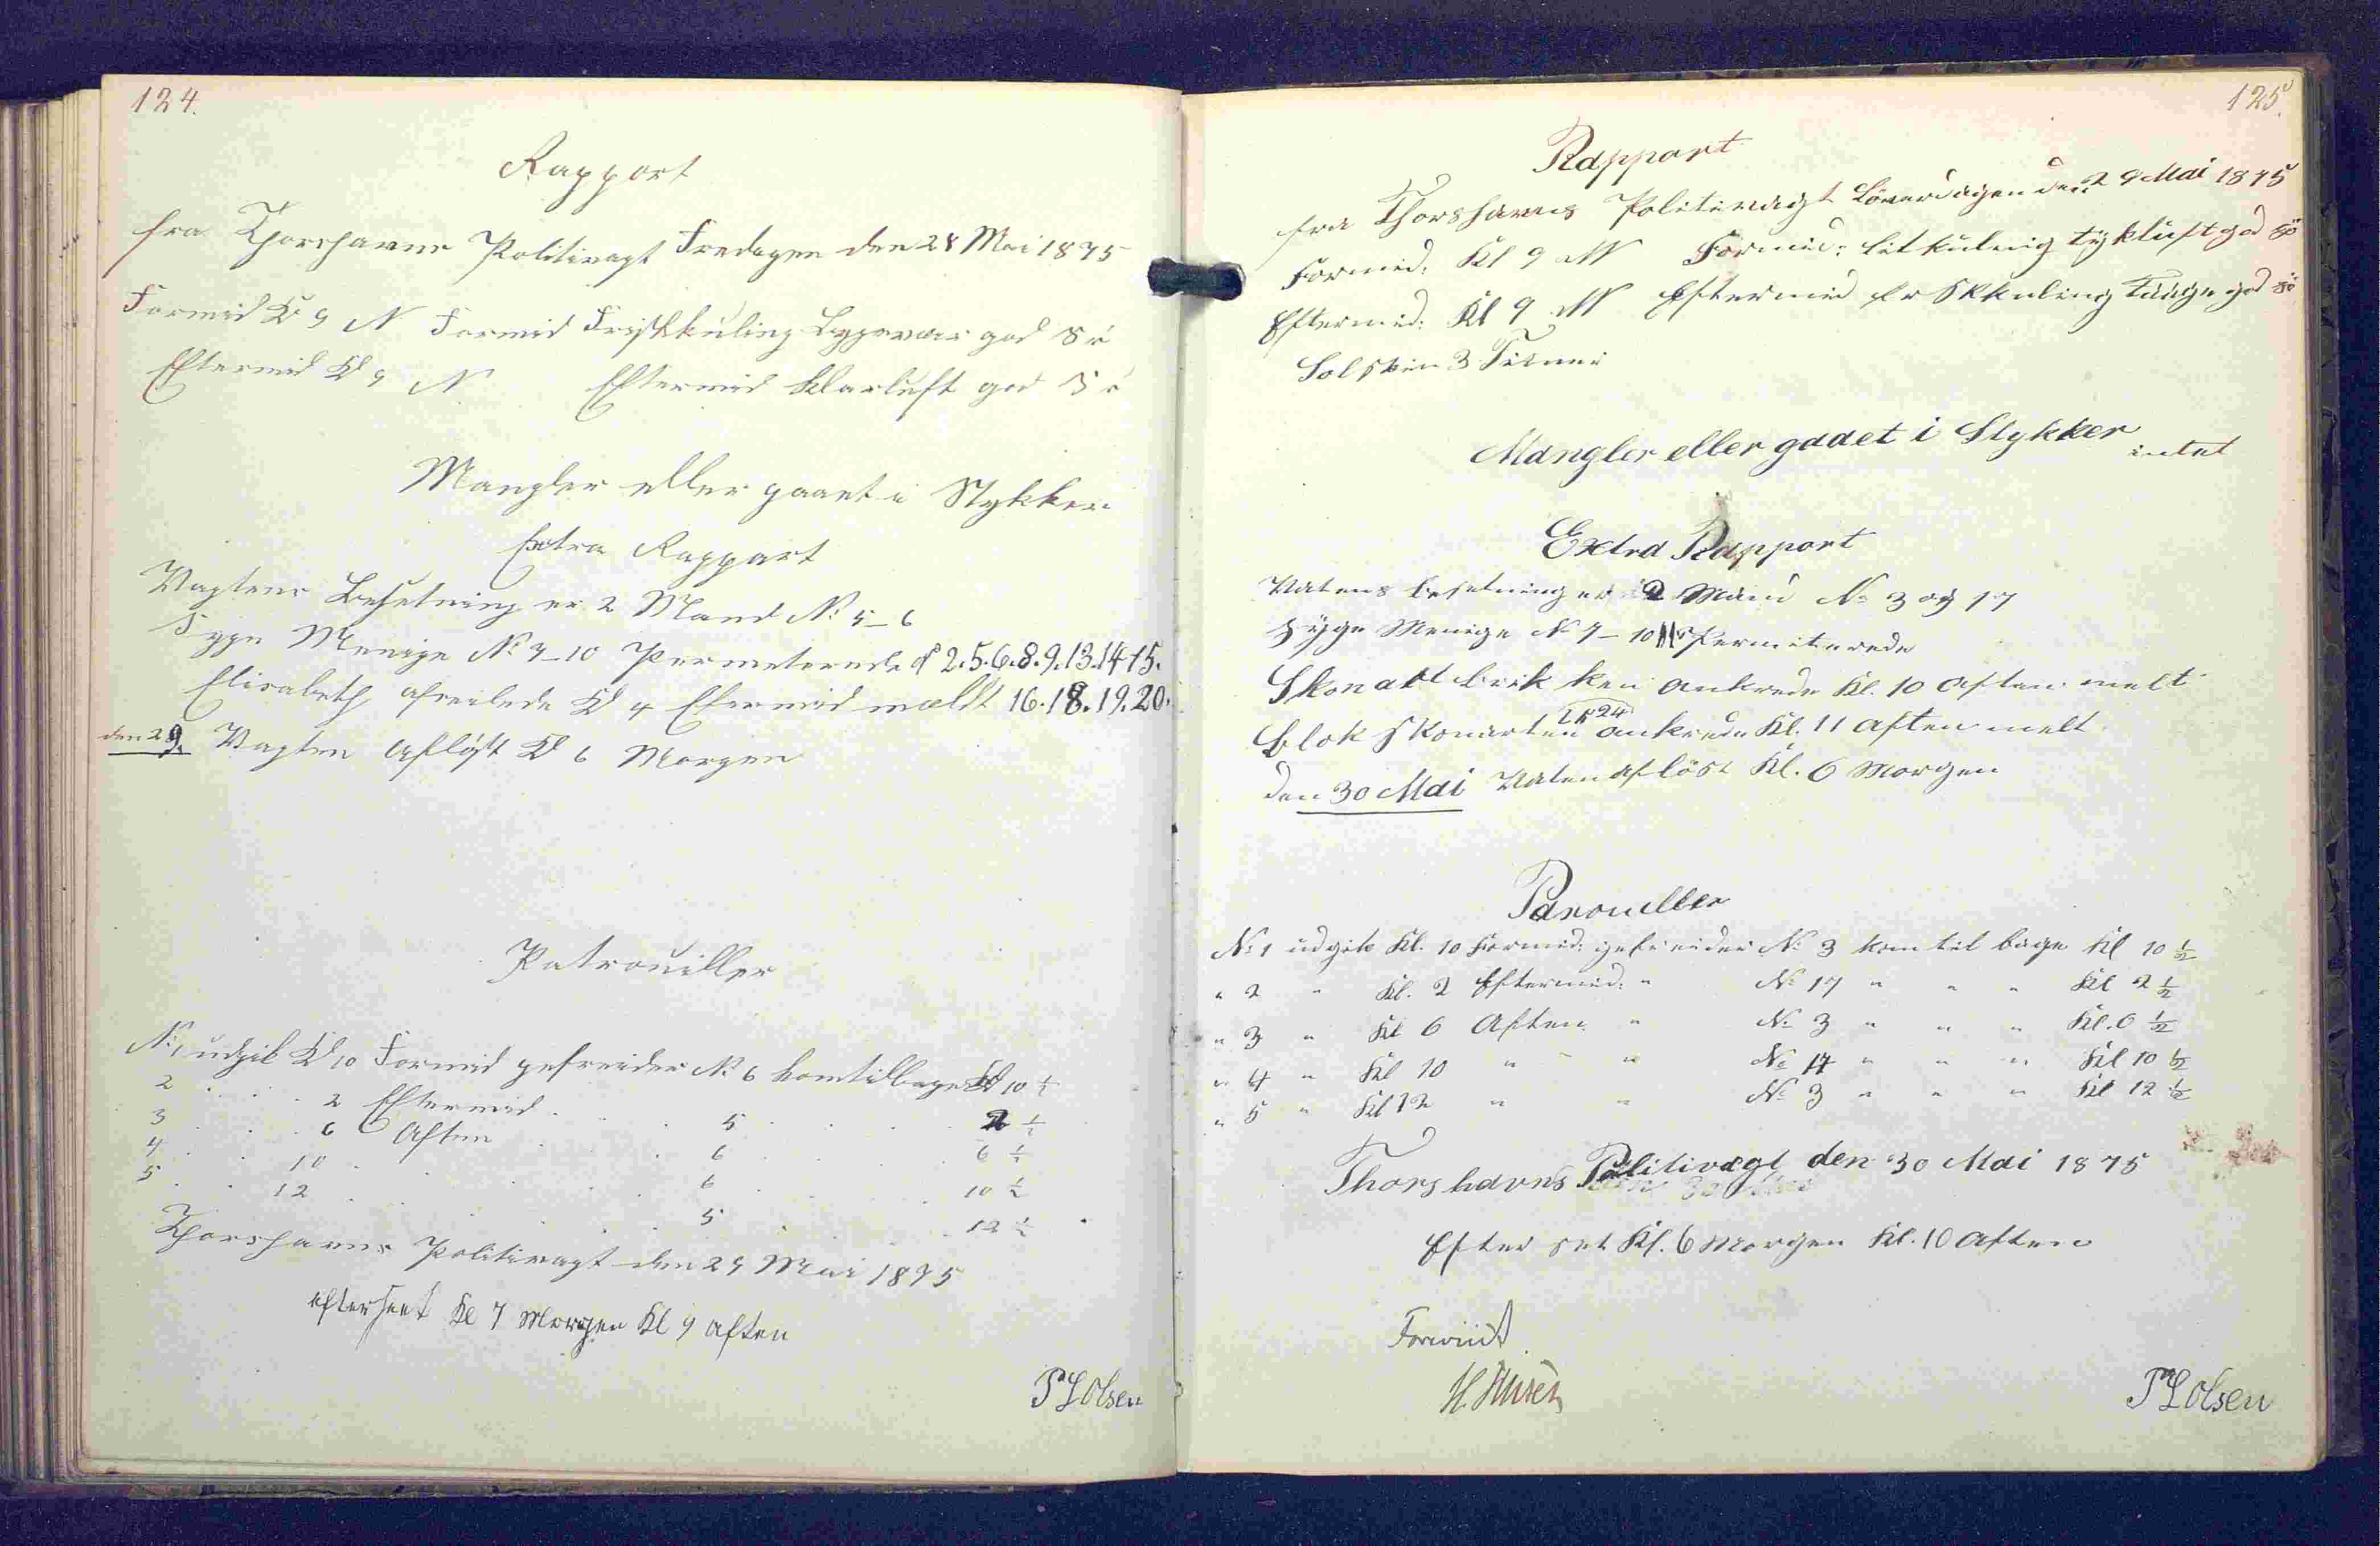 124.
Rapport
fra Thorshavns Politivagt Fredagen den 28 Mai 1875
Formid Kl 9 N Formid Friskkuling Bygevær god Sö
Eftermid Kl 9 N Eftermid Klarluft god Sö
Mangler eller gaaet i Stykker
Extra Rapport
Vagtens Besetning er 2 Mand No 5-6
Syge Menige No 7-10 Permeterede 2.5.6.8.9.13.14 15.
Elisabeth afseilede Kl 4 Efermid meldt 16.18.19.20.
den 29. Vagten Afløst Kl 6 Morgen
Patrouiller
No 1 udgik Kl 10 Formid gefreider No 6 kom tilbage Kl 10 ½
2 . . . 2 Eftermid . . 5 . . . 2 ½
3 . . . 6 Aften . . 6 . . . 6 ½
4 . . 10 . . . 6 . . . 10 ½
5 . . 12 . . . 5 . . . 12 ½
Thorshavns Politivagt den 29 Mai 1875
efterseet Kl 7 Morgen Kl 9 Aften
P L Olsen
125.
Rapport
fra Thorshavns Politivagt Löverdagen den 29 Mai 1875
Formid: Kl 9 N Formid: litkulnig tykluft god sö
Eftermid: Kl 9 N Eftermid Frskkuling god sö
Solskin 3 Timer
Mangler eller gaaet i Stykker intet
Extra Rapport
Vatens besetning er 2 Mand No 3 og 17
Syge Menige No 7-10 Permiterede
Skonart brik ken ankrede Kl. 10 Aften melt
Blok Skonarten ankrede Kl. 11 Aften melt
den 30 Mai Vaten aflöst Kl. 6 Morgen
Parouller
No 1 udgik Kl. 10 Formid: gefreider No 3 kom til bage Kl 10 ½
" 2 " Kl. 2 Eftermid: " No 17 " " " Kl 2 ½
" 3 " Kl 6 Aften " No 3 " " " Kl. 6 ½
" 4 " Kl 10 " " No 17 " " " Kl 10 ½
" 5 " Kl 12 " " No 3 " " " Kl 12 ½
Thorshavns Politivagt den 30 Mai 1875
Efter set Kl. 6 Morgen Kl. 10 Aften
P L Olsen